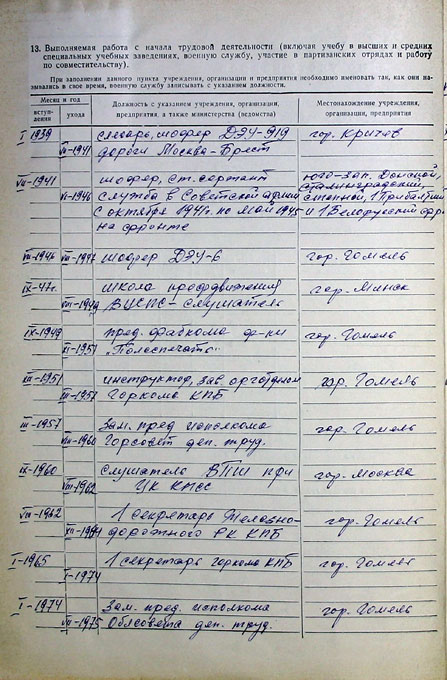 13. Выполняемая работа с начала трудовой деятельности (включая учебу в высших и средних
специальных учебных заведениях, военную службу, участие в партизанских отрядах и работу
по совместительству).
При заполнении данного пункта учреждения, организации и предприятия необходимо именовать так, как они на-
зывались в свое время, военную службу записывать с указанием должности.
Месяц и год
вступ-
ления
ухода
Должность с указанием учреждения, организации,
предприятия, а также министерства (ведомства)
Местонахождение учреждения,
организации, предприятия
I 1939 слесарь, шофер ДЭУ-919 гор. Кричев
VII-1941 дороги Москва-Брест
VII-1941 шофер, ст. сержант Юго-зап. Донской,
Сталинградский,
VII-1946 служба в Советской армии Степной, 1 Прибалтий
с октября 1941г. по май 1945 и 1 Белорусский фр.
на фронте
VII-1946 VIII-1947 шофер ДЭУ-6 гор. Гомель
IX-47г. школа профдвижения гор. Минск
VIII-1949 ВЦСПС - слушатель
IX-1949 пред. фабкома ф-ки гор. Гомель
XI-1951 "Полеспечать"
XI-1951 инструктор, зав. орготделом гор. Гомель
III-1957 Горкома КПБ
III-1957 Зам. пред исполкома гор. Гомель
VIII-1960 Горсовет деп. труд.
IX-1960 слушатель ВПШ при гор. Москва
VIII-1962 ЦК КПСС
VIII-1962 1 секретарь Железно- гор. Гомель
XII-1964 дорожного РК КПБ
I-1965 1 секретарь горкома КПБ гор. Гомель
I-1974
I-1974 Зам. пред. исполкома гор. Гомель
VII-1975 Облсовета деп. труд.